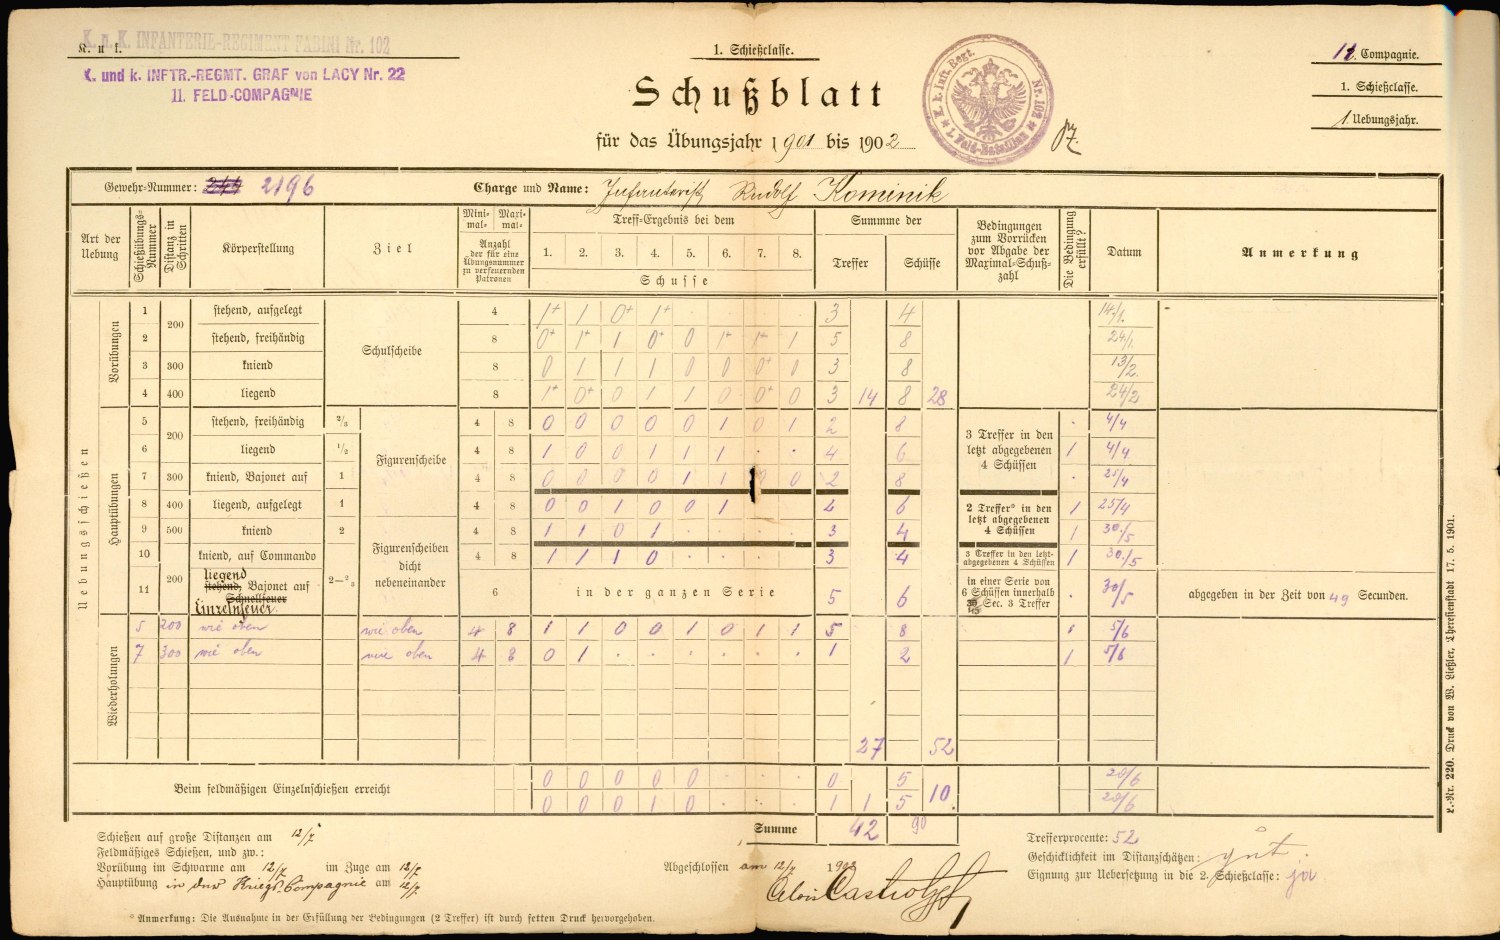 K. u. K. INFANTERIE-REGIMENT FABINI Nr. 102
K. u. k.
K. und k. INFTR.-REGMT. GRAF von LACY Nr. 22
11. FELD-COMPAGNIE
1. Schießclasse.
Schußblatt
für das Übungsjahr 1901 bis 1902
K. k. Inft. Regt. Nr. 102 * 1. Feld-Bataillon *
Compagnie.
1. Schießclasse.
1. Uebungsjahr.
Gewehr-Nummer: 2196 Charge und Name: Infanterist Rudolf Kominik
Art der Uebung Schießübungs-Nummer Distanz in Schritten Körperstellung Ziel Mini-mal- Maxi-mal- Anzahl der für eine Übungsnummer zu verfeuernden Patronen Treff-Ergebnis bei dem 1. 2. 3. 4. 5. 6. 7. 8. Schusse Summme der Treffer Schüsse Bedingungen zum Vorrücken vor Abgabe der Maximal-Schuß-zahl Die Bedingung erfüllt? Datum Anmerkung
Uebungsschießen
Vorübungen
1 200 stehend, aufgelegt Schulscheibe 4 1+ 1 0+ 1+ · · · · 3 4 14/1.
2 stehend, freihändig 8 0+ 1+ 1 0+ 0 1+ 1+ 1 5 8 24/1.
3 300 kniend 8 0 1 1 1 0 0 0+ 0 3 8 13/2.
4 400 liegend 8 1+ 0+ 0 1 1 0 0+ 0 3 14 8 28 24/2
Hauptübungen
5 200 stehend, freihändig 2/3 Figurenscheibe 4 8 0 0 0 0 0 1 0 1 2 8 3 Treffer in den letzt abgegebenen 4 Schüssen · 4/4
6 liegend 1/2 4 8 1 0 0 1 1 1 · · 4 6 1 4/4
7 300 kniend, Bajonet auf 1 4 8 0 0 0 0 1 1 0 0 2 8 · 25/4
8 400 liegend, aufgelegt 1 4 8 0 0 1 0 0 1 6 2 Treffer* in den letzt abgegebenen 4 Schüssen 1 25/4
9 500 kniend 2 Figurenscheiben dicht nebeneinander 4 8 1 1 0 1 · · · · 3 4 1 30./5
10 200 kniend, auf Commando 4 8 1 1 1 0 · · · · 3 4 3 Treffer in den letzt-abgegebenen 4 Schüssen 1 30./5
11 liegend stehend, Bajonet auf Schnellfeuer Einzelnfeuer. 2—2/3 6 in der ganzen Serie 5 6 in einer Serie von 6 Schüssen innerhalb 45 Sec. 3 Treffer · 30/5 abgegeben in der Zeit von 49 Secunden.
Wiederholungen
5 200 wie oben wie oben 4 8 1 1 0 0 1 0 1 1 5 8 5/6
7 300 wie oben wie oben 4 8 0 1 · · · · · · 1 2 1 5/6
27 52
Beim feldmäßigen Einzelnschießen erreicht 0 0 0 0 0 · · · 0 5 20/6
0 0 0 1 0 · · · 1 1 5 10. 20/6
Summe 42 90
Schießen auf große Distanzen am 12/7
Feldmäßiges Schießen, und zw.:
Vorübung im Schwarme am 12/7 im Zuge am 12/7.
Hauptübung in der Kriegs-Compagnie am 12/7.
Abgeschlossen am 12/7 1902
Trefferprocente: 52
Geschicklichkeit im Distanzschätzen: gut.
Eignung zur Uebersetzung in die 2. Schießclasse: ja
* Anmerkung: Die Ausnahme in der Erfüllung der Bedingungen (2 Treffer) ist durch fetten Druck hervorgehoben.
L.-Nr. 220. Druck von W. Ließler, Theresienstadt 17. 5. 1901.